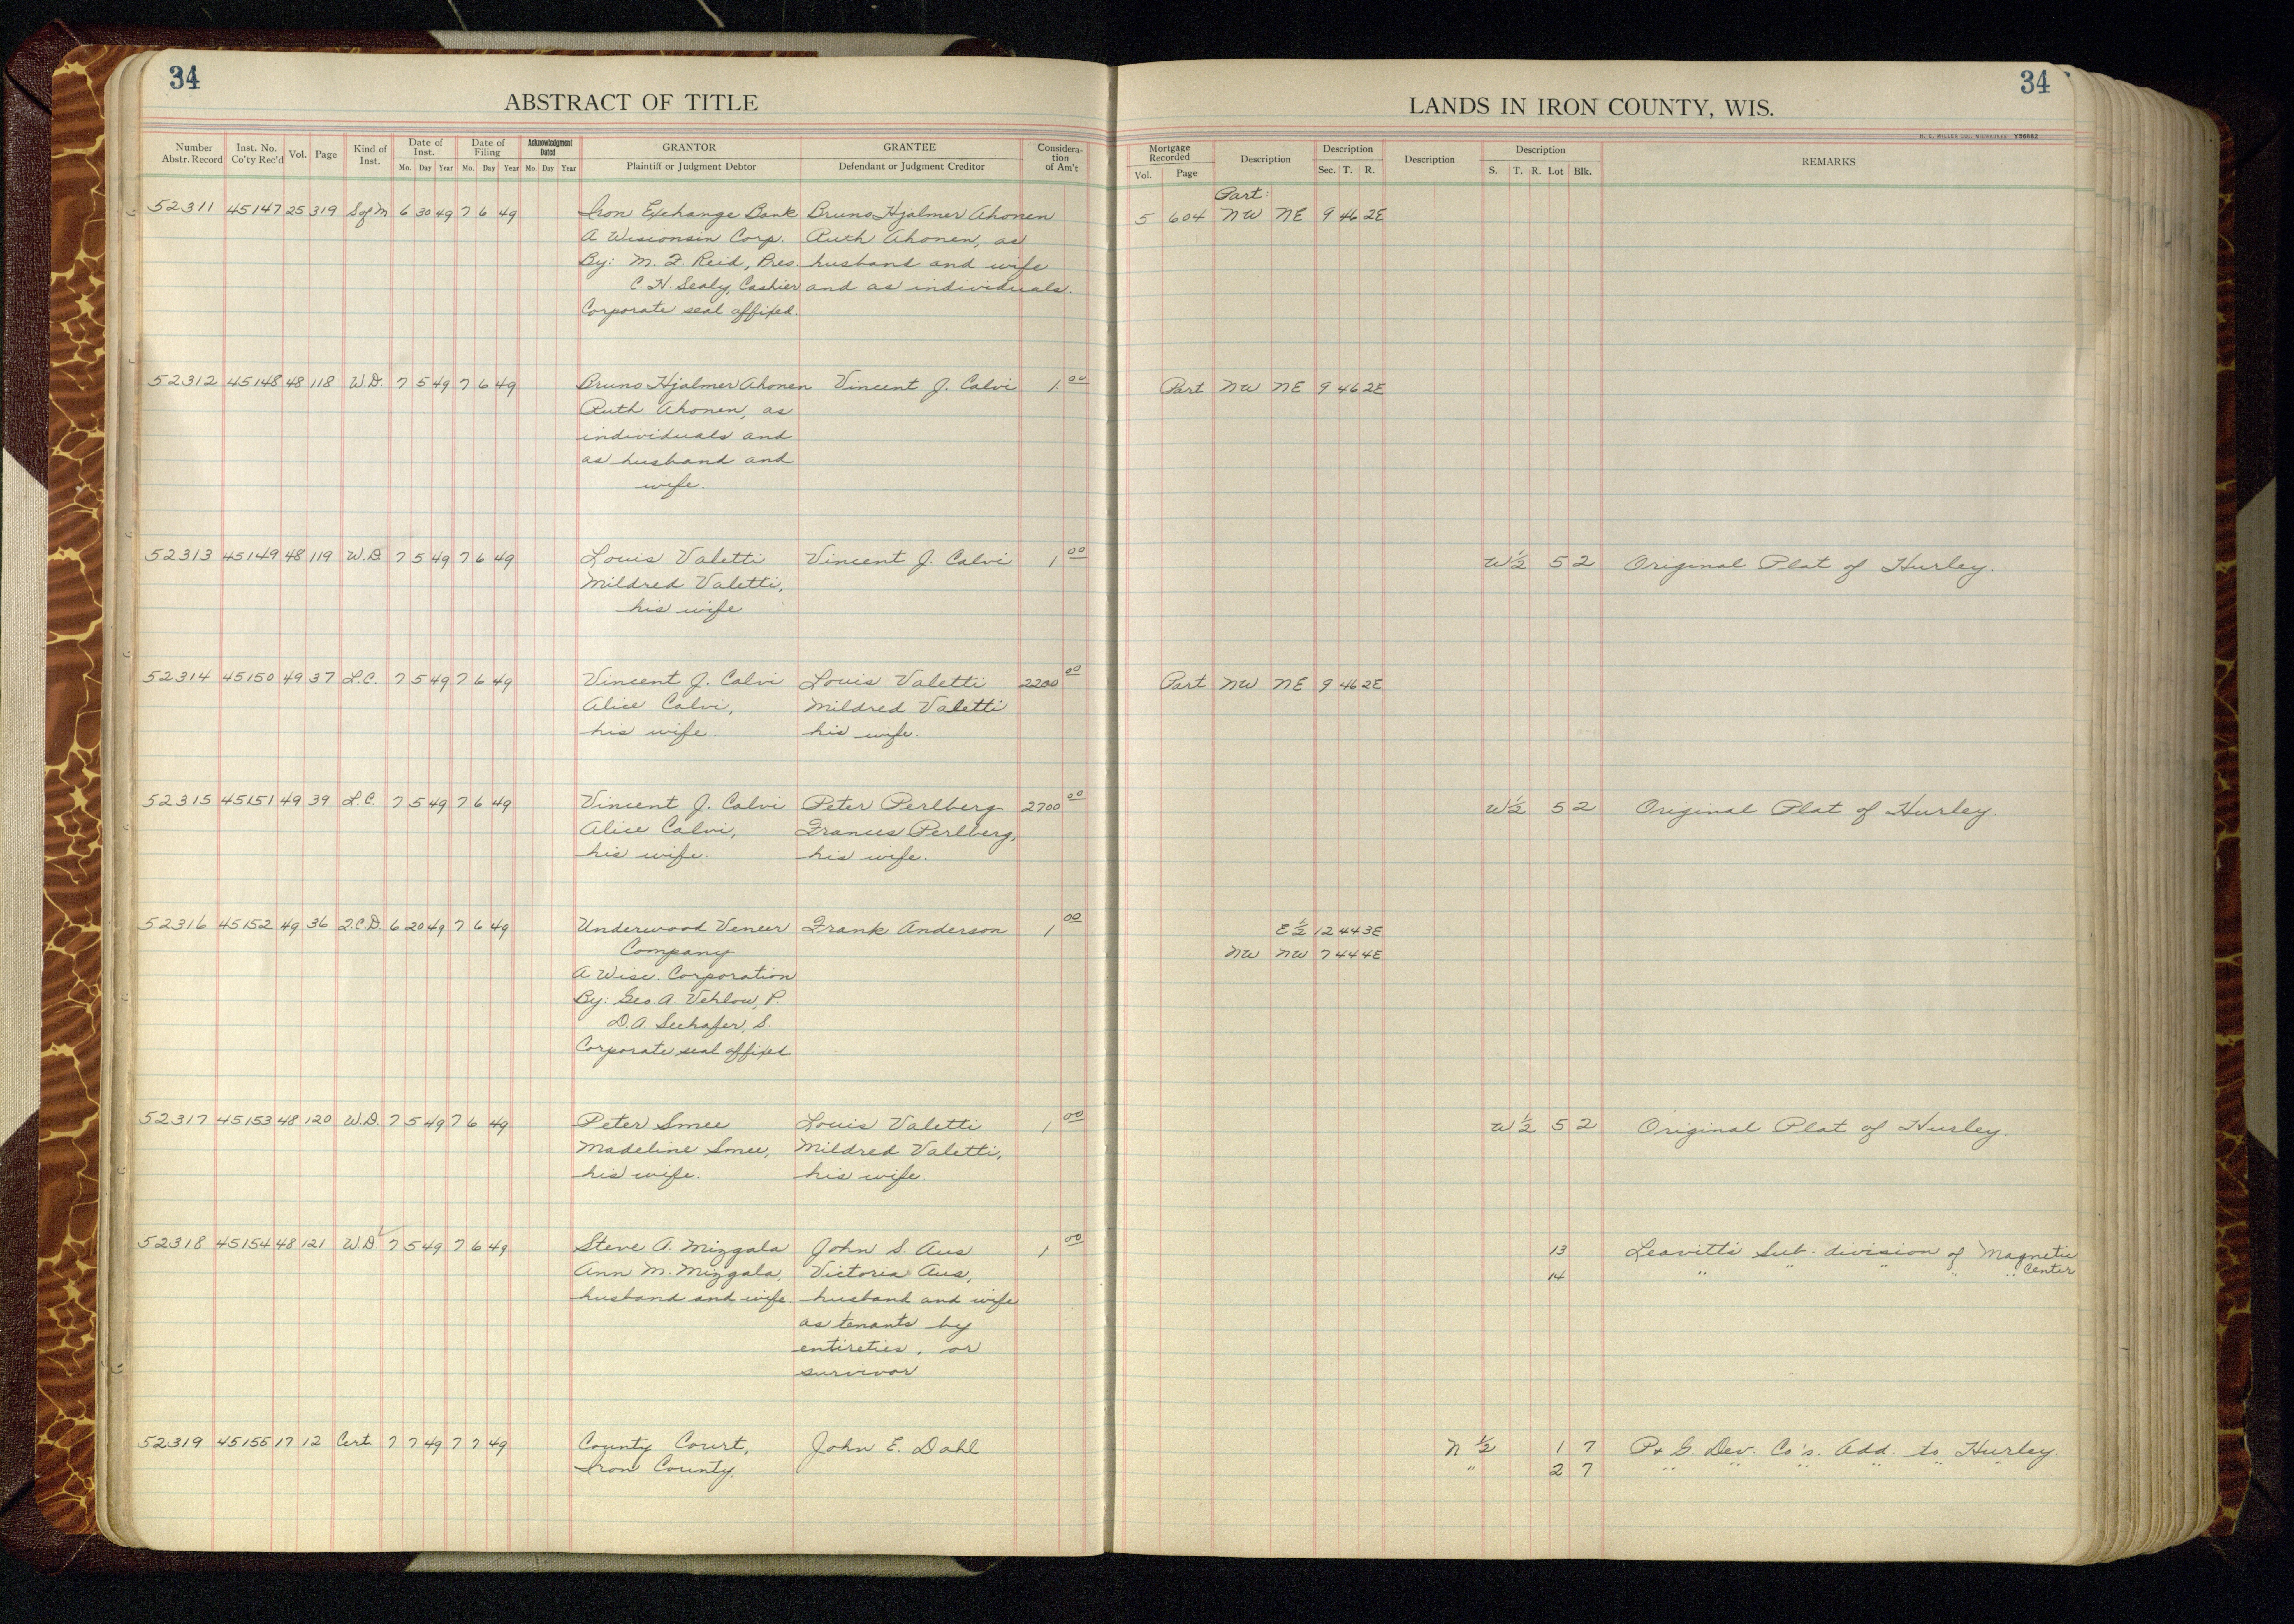 34
ABSTRACT OF TITLE
Number Abstr. Record | Inst. No. Co'ty Rec'd | Vol. | Page | Kind of Inst. | Date of Inst. Mo. Day Year | Date of Filing Mo. Day Year | Acknowledgment Dated Mo. Day Year | GRANTOR Plaintiff or Judgment Debtor | GRANTEE Defendant or Judgment Creditor | Considera-tion of Am't
34
LANDS IN IRON COUNTY, WIS.
H. C. MILLER CO., MILWAUKEE Y56682
Mortgage Recorded Vol. Page | Description | Description Sec. T. R. | Description | Description S. T. R. Lot Blk. | REMARKS
Part:
52311 45147 25 319 S of M 6 30 49 7 6 49 Iron Exchange Bank Bruno Hjalmer Ahonen 5 604 NW NE 9 46 2E
A Wisconsin Corp. Ruth Ahonen, as
By: M. F. Reid, Pres. husband and wife
C. H. Sealy, Cashier and as individuals.
Corporate seal affixed.
52312 45148 48 118 W.D. 7 5 49 7 6 49 Bruno Hjalmer Ahonen Vincent J. Calvi 1 00 Part NW NE 9 46 2E
Ruth Ahonen, as
individuals and
as husband and
wife.
52313 45149 48 119 W.D 7 5 49 7 6 49 Louis Valetti Vincent J. Calvi 1 00 W 1/2 5 2 Original Plat of Hurley.
Mildred Valetti,
his wife
52314 45150 49 37 L.C. 7 5 49 7 6 49 Vincent J. Calvi Louis Valetti 2200 00 Part NW NE 9 46 2E
Alice Calvi, Mildred Valetti
his wife. his wife.
52315 45151 49 39 L.C. 7 5 49 7 6 49 Vincent J. Calvi Peter Perlberg 2700 00 W 1/2 5 2 Original Plat of Hurley.
Alice Calvi, Frances Perlberg,
his wife. his wife.
52316 45152 49 36 2.C.D. 6 20 49 7 6 49 Underwood Veneer Frank Anderson 1 00 E 1/2 12 44 3E
Company NW NW 7 44 4E
A Wisc. Corporation
By: Geo. A. Vehlow, P.
D.A. Seehafer, S.
Corporate seal affixed
52317 45153 48 120 W.D. 7 5 49 7 6 49 Peter Smee Louis Valetti 1 00 W 1/2 5 2 Original Plat of Hurley.
Madeline Smee, Mildred Valetti,
his wife. his wife.
52318 45154 48 121 W.D. 7 5 49 7 6 49 Steve A. Mizgala John S. Aus 1 00 13 Leavitt's Sub-division of Magnetic
Ann M. Mizgala, Victoria Aus, 14 " " " " " Center
husband and wife. husband and wife
as tenants by
entireties, or
survivor
52319 45155 17 12 Cert. 7 7 49 7 7 49 County Court, John E. Dahl N 1/2 1 7 P. & G. Dev. Co's. Add. to Hurley.
Iron County. " 2 7 " " " " " "